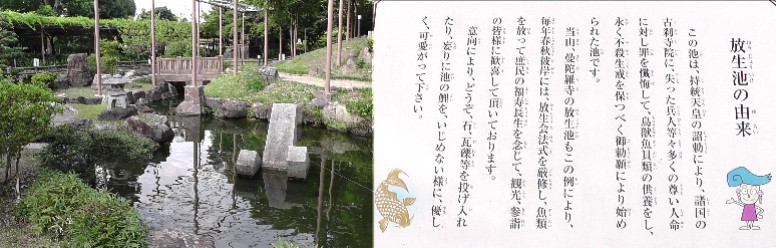 放生池の由来
ほうじょうちのゆらい
この池は、持統天皇の詔勅により、諸国の
古刹寺院に、失った兵人等々多くの尊い人命
に対し罪を懺悔して、鳥獣魚貝類の供養をし、
永く不殺生戒を保つべく御勅願により始め
られた池です。
当山、曼陀羅寺の放生池もこの例により、
毎年春秋彼岸には、放生会法式を厳修し、魚類
を放って庶民の福寿長生を念じて、観光、参詣
の皆様に歓喜して頂いております。
意向により、どうぞ、石、瓦礫等を投げ入れ
たり、妄りに池の鯉を、いじめない様に、優し
く、可愛がって下さい。